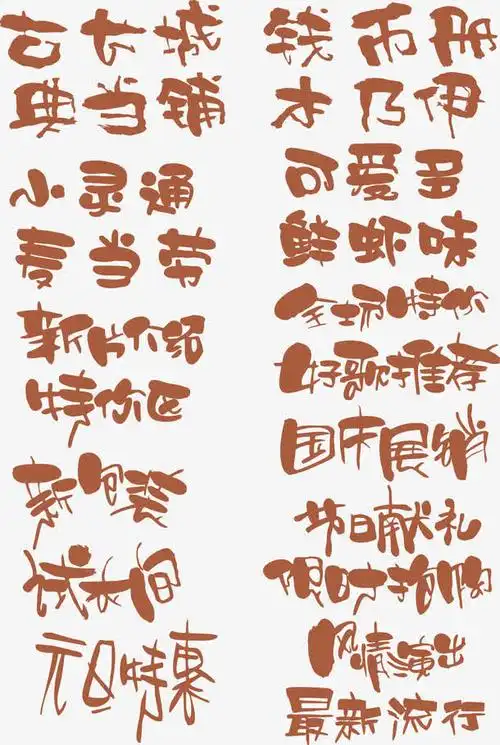 古长城
典当铺
小灵通
麦当劳
新片介绍
特价区
新包装
试衣间
元旦特惠
钱币册
木乃伊
可爱多
鲜虾味
全场特价
好歌推荐
国展销
节日献礼
限时抢购
风情演出
最新流行